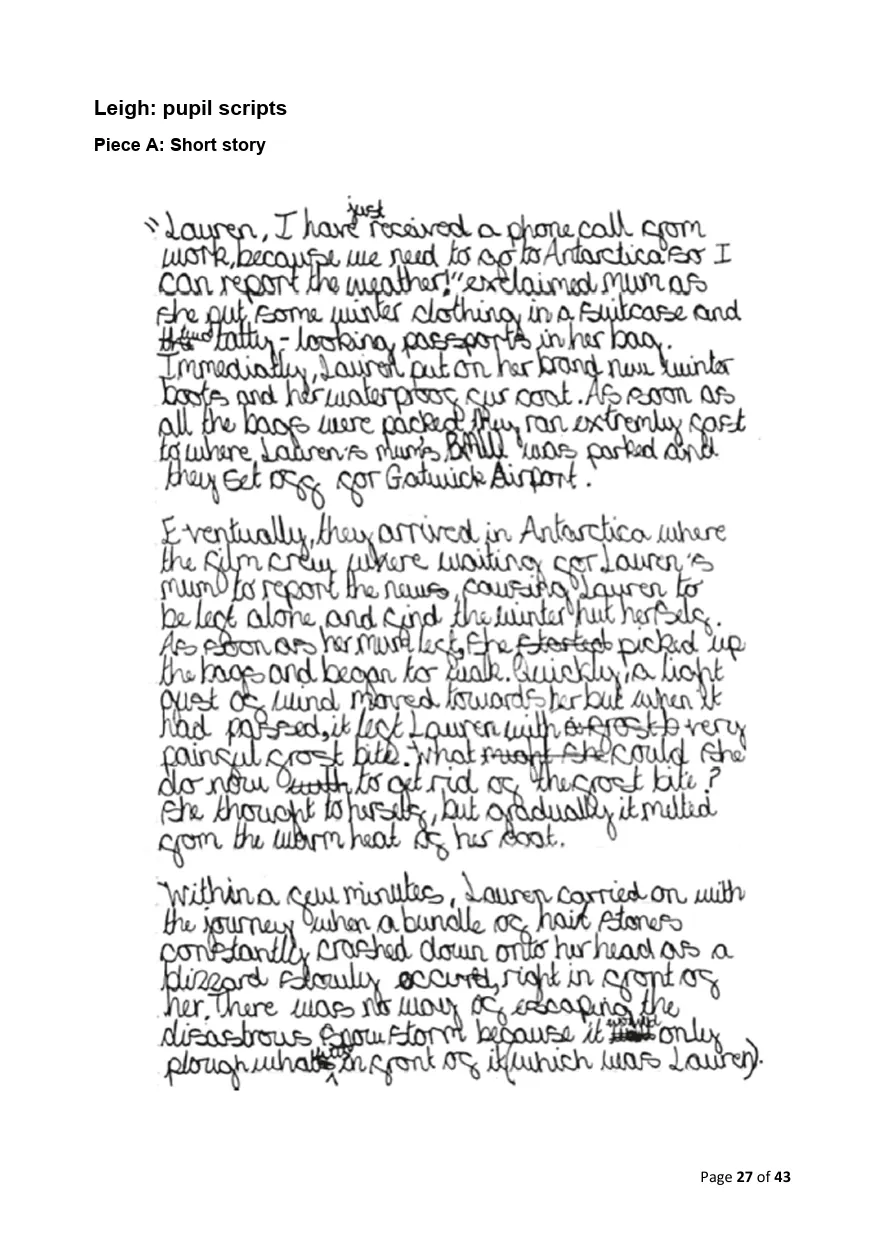 Leigh: pupil scripts
Piece A: Short story
just
"Lauren, I have received a phone call from
work, because we need to go to Antarctica so I
can report the weather!" exclaimed Mum as
she put some winter clothing in a suitcase and
tatty-looking passports in her bag.
Immediatly, Lauren put on her brand new winter
boots and her waterproof fur coat. As soon as
all the bags were packed, they ran extremly fast
to where Lauren's mum's BMW was parked and
they set off for Gatwick Airport.
Eventually, they arrived in Antarctica where
the film crew where waiting for Lauren's
mum to report the news, causing Lauren to
be left alone and find the winter hut herself.
As soon as her mum left, she started picked up
the bags and began to walk. Quickly, a light
gust of wind moved towards her but when it
had passed, it left Lauren with a frost b very
painful frost bite. What might she could she
do now to get rid of the frost bite?
She thought to herself, but gradually it melted
from the warm heat of her coat.
Within a few minutes, Lauren carried on with
the journey when a bundle of hail stones
constantly crashed down onto her head as a
blizzard slowly occured, right in front of
her. There was no way of escaping the
disastrous snow storm because it would only
plough what was in front of it (which was Lauren).
Page 27 of 43